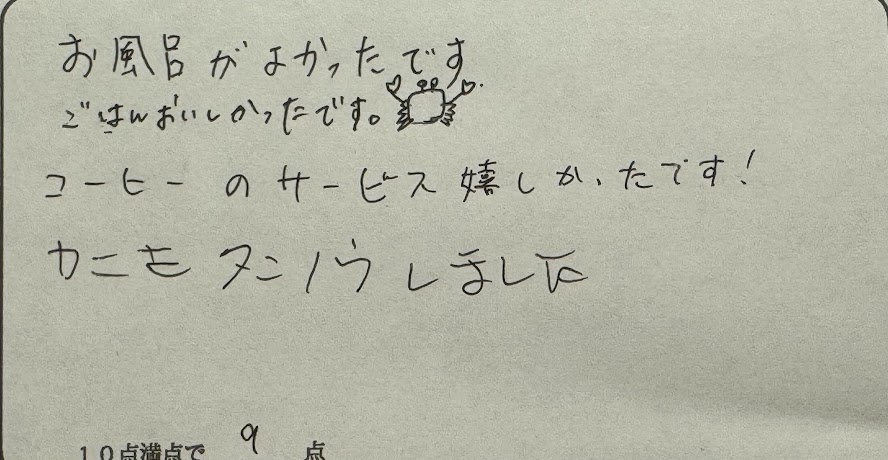 お風呂がよかったです
ごはんおいしかったです。
コーヒーのサービス嬉しかったです!
カニもタンノウしました
10点満点で 9 点